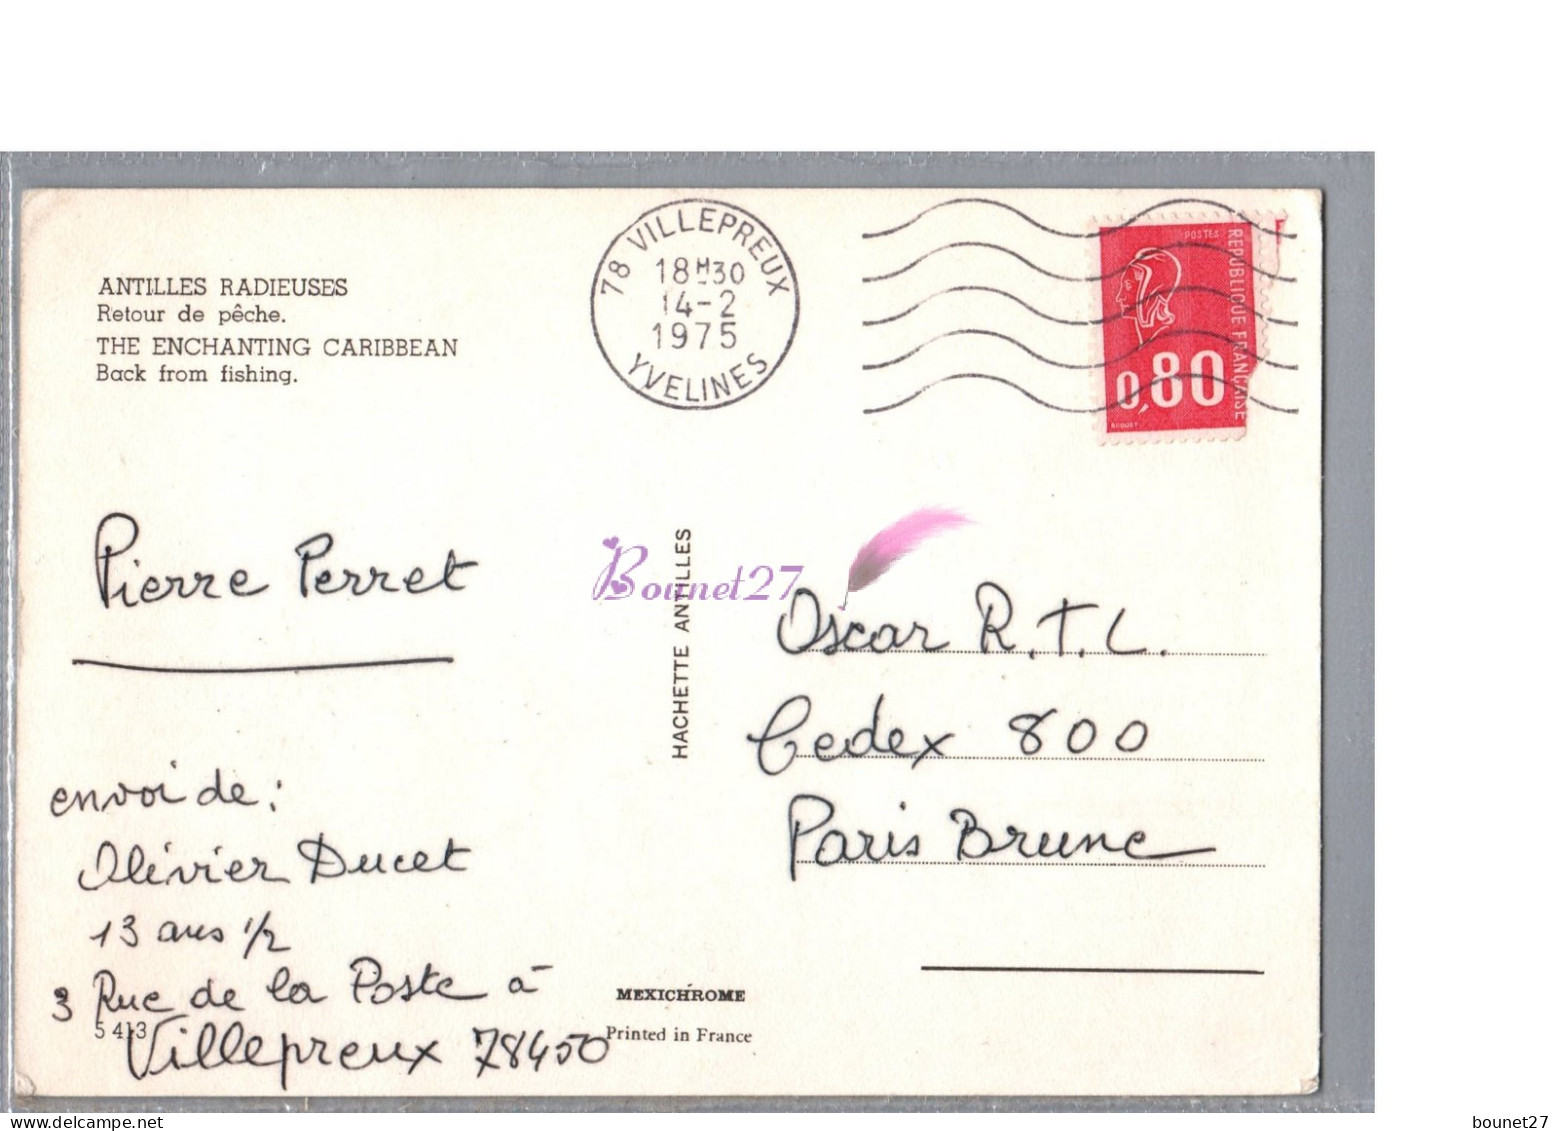 ANTILLES RADIEUSES
Retour de pêche.
THE ENCHANTING CARIBBEAN
Back from fishing.
78 VILLEPREUX
18H30
14-2
1975
YVELINES
POSTES
REPUBLIQUE FRANÇAISE
0,80
BEQUET
Pierre Perret
envoi de:
Olivier Ducet
13 ans 1/2
3 Rue de la Poste à
Villepreux 78450
5 413
HACHETTE ANTILLES
Bounet27
Oscar R.T.L.
Cedex 800
Paris Brune
MEXICHROME
Printed in France
bounet27